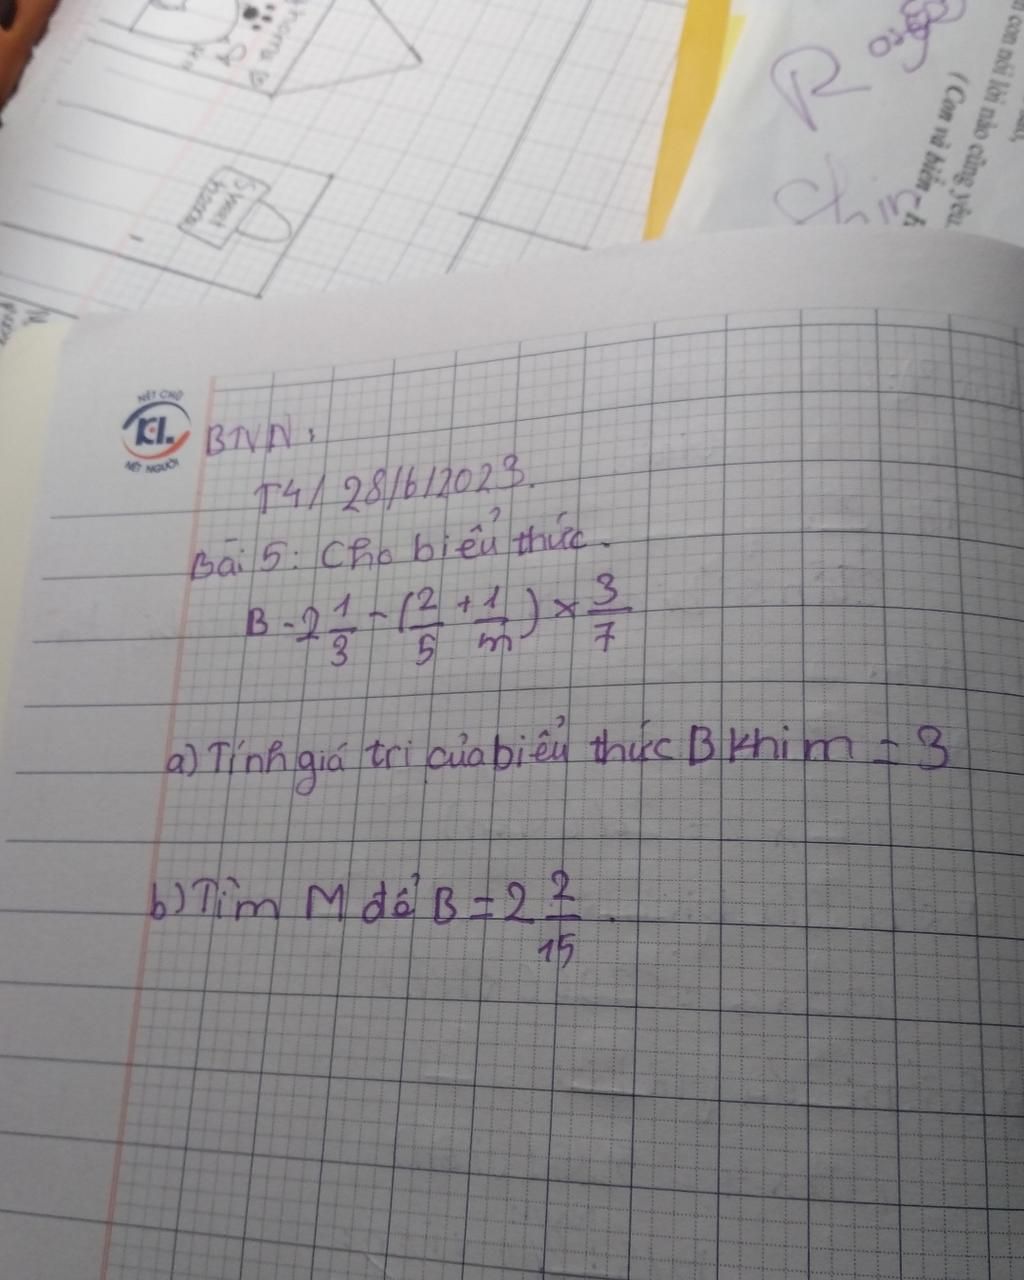 (Con và biển - 
con nói lời nào cũng yêu,
NÉT CHỮ
KL.
NÉT NGƯỜI
BTVN:
T4/ 28/6/2023.
Bài 5: Cho biểu thức.
B - 2 1/3 - (2/5 + 1/m) × 3/7
a) Tính giá tri của biểu thức B khi m = 3
b) Tìm M để B = 2 2/15.